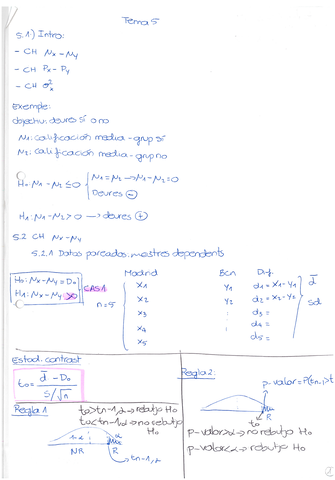 Tema 5
5.1) Intro:
- CH Nx - Ny
- CH Px - Py
- CH σ²x
Exemple:
objectiu: deures sí o no
N1: calificación media - grup sí
N2: calificación media - grup no
H0: N1 - N2 ≤ 0 { N1 = N2 → N1 - N2 = 0
Deures ⊖
H1: N1 - N2 > 0 → deures ⊕
5.2 CH Nx - Ny
5.2.1 Datos pareados: mostres dependents
H0: Nx - Ny = D0
H1: Nx - Ny > 0
CAS 1
n = 5
Madrid Bcn Dif.
x1 y1 d1 = x1 - y1
x2 y2 d2 = x2 - y2
x3 : d3 =
x4 : d4 =
x5 d5 =
d̄
sd
Estad. contrast
t0 = d̄ - D0 / S/√n
Regla 1
t0 > tn-1,α → rebutjo H0
t0 < tn-1,α → no rebutjo H0
1-α α
NR R
tn-1,α
Regla 2:
p-valor = P(tn-1 > t
t0 R
p-valor > α → no rebutjo H0
p-valor < α → rebutjo H0